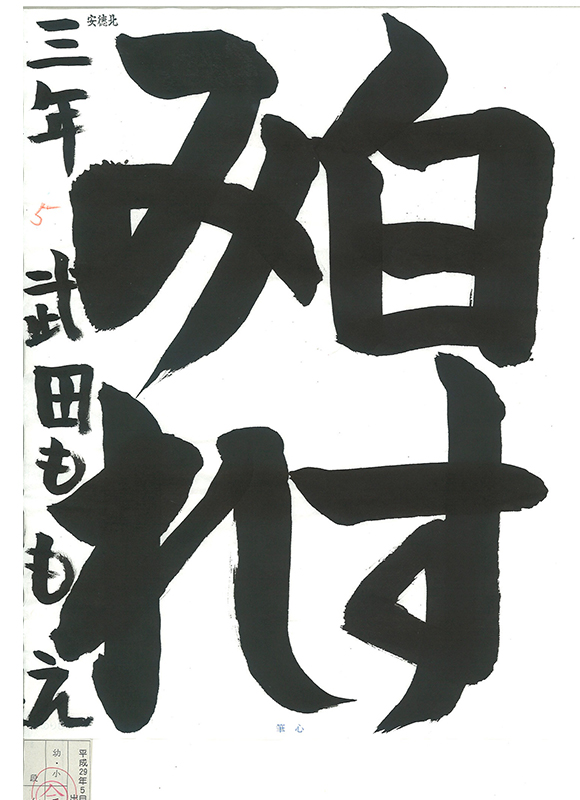 白す
みれ
安徳北
三年 武田ももえ
5
筆心
平成29年5月
幼・小
段